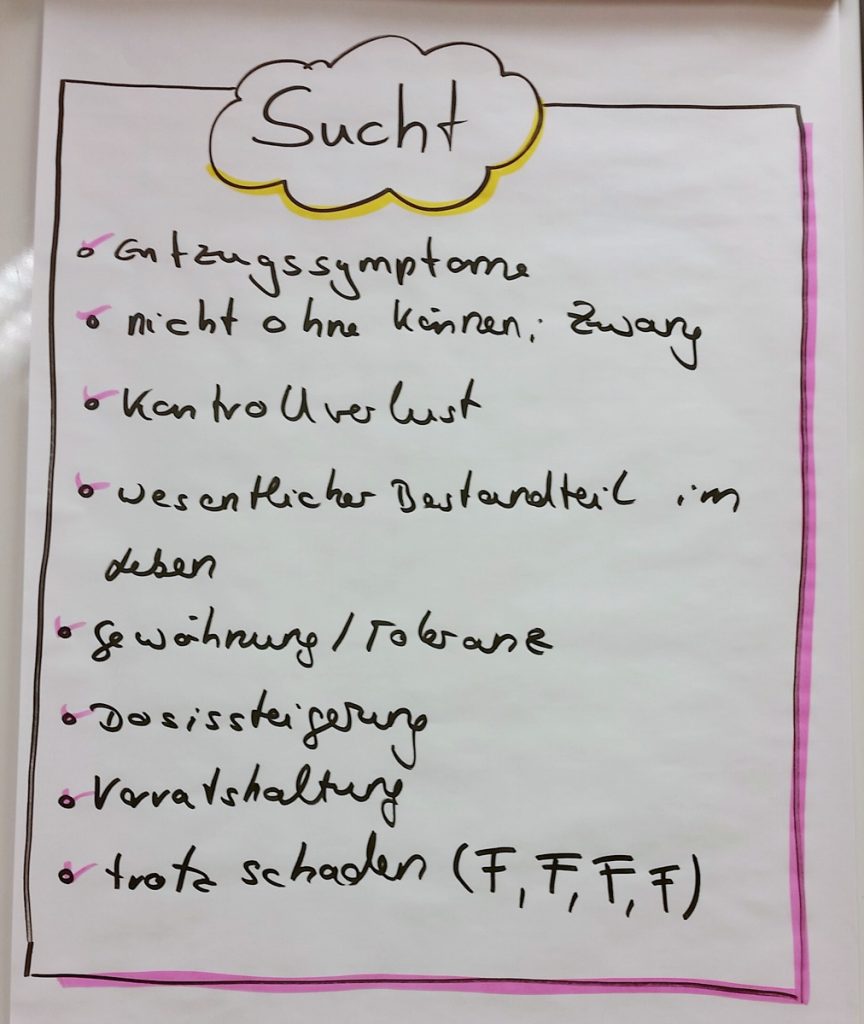 Sucht
Entzugssymptome
nicht ohne können; Zwang
Kontrollverlust
wesentlicher Bestandteil im
Leben
Gewöhnung / Toleranz
Dosissteigerung
Vorratshaltung
trotz schaden (F, F, F, F)